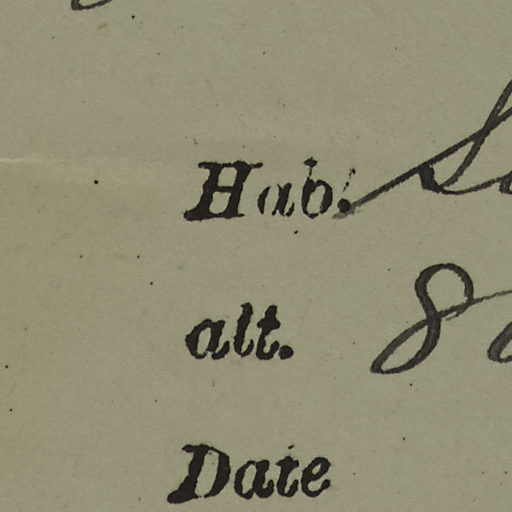 Hab.
alt. 8
Date